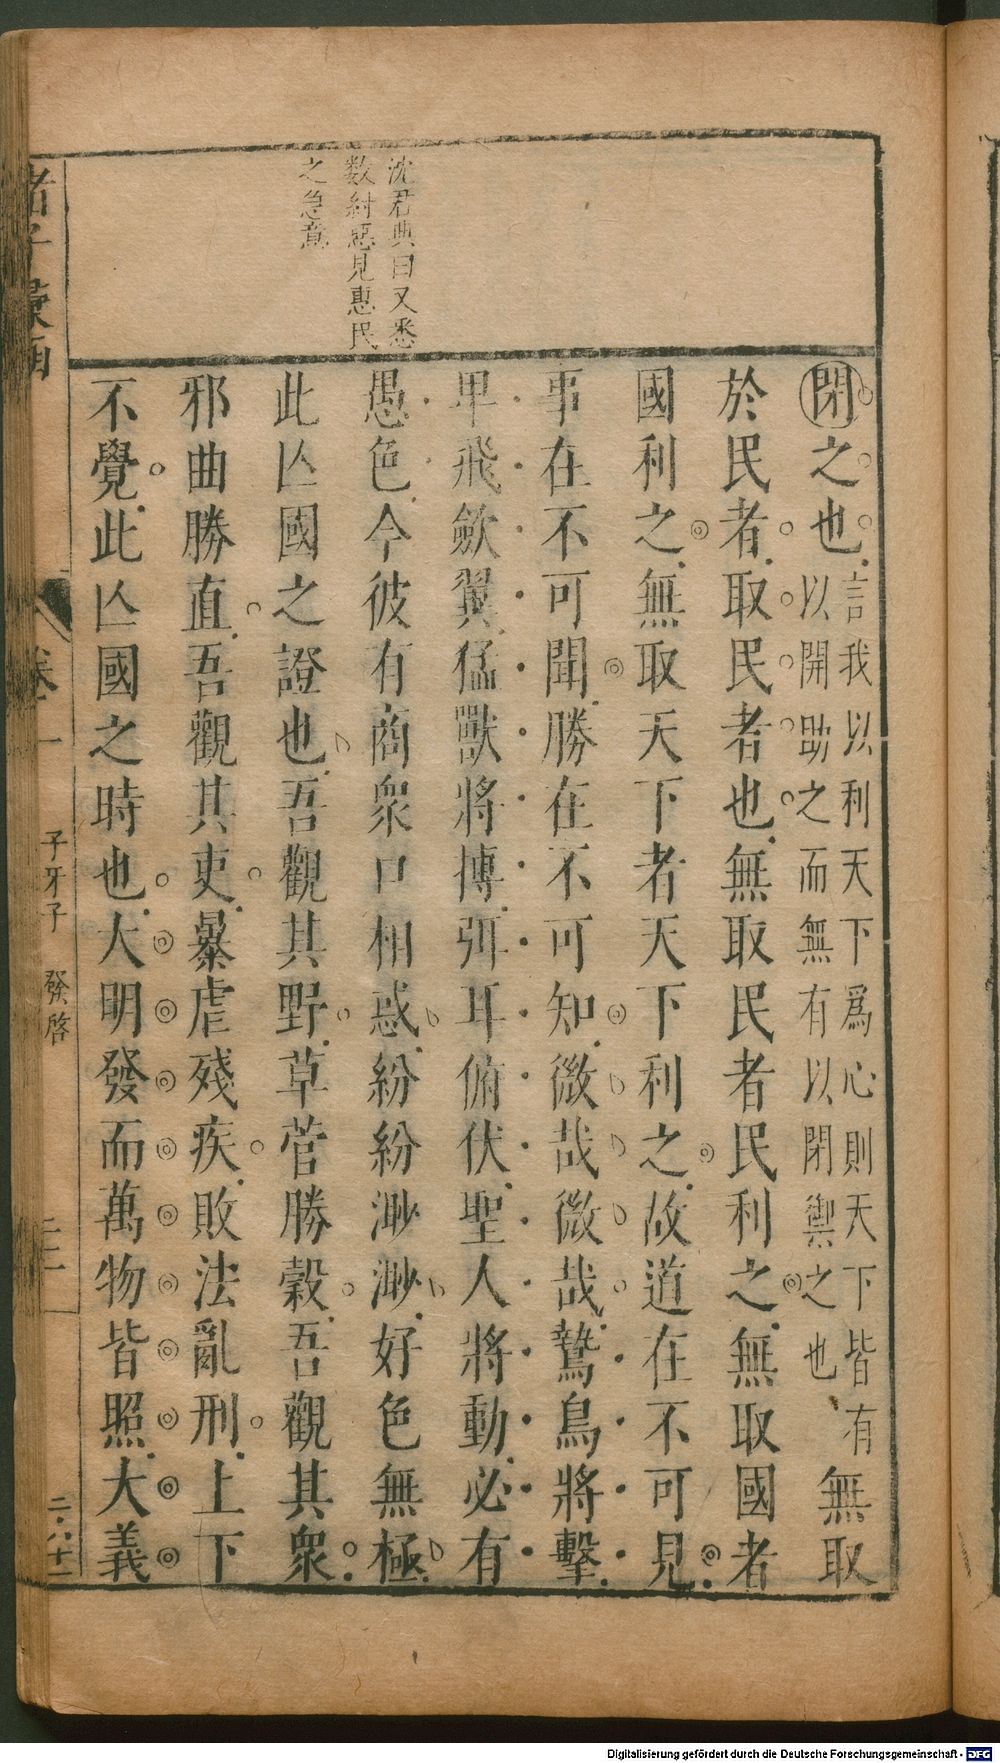 沈君典曰又悉
数紂惡見惠民
之急意
閉之也言我以利天下爲心則天下皆有以開助之而無有以閉禦之也無取
於民者取民者也無取民者民利之無取國者
國利之無取天下者天下利之故道在不可見
事在不可聞勝在不可知微哉微哉鷙鳥將擊
卑飛歛翼猛獸將搏弭耳俯伏聖人將動必有
愚色今彼有商衆口相惑紛紛渺渺好色無極
此亾國之證也吾觀其野草菅勝穀吾觀其衆
邪曲勝直吾觀其吏暴虐殘疾敗法亂刑上下
不覺此亾國之時也大明發而萬物皆照大義
諸子彙函 卷一 子牙子 發啓 二十一
Digitalisierung gefördert durch die Deutsche Forschungsgemeinschaft - DFG